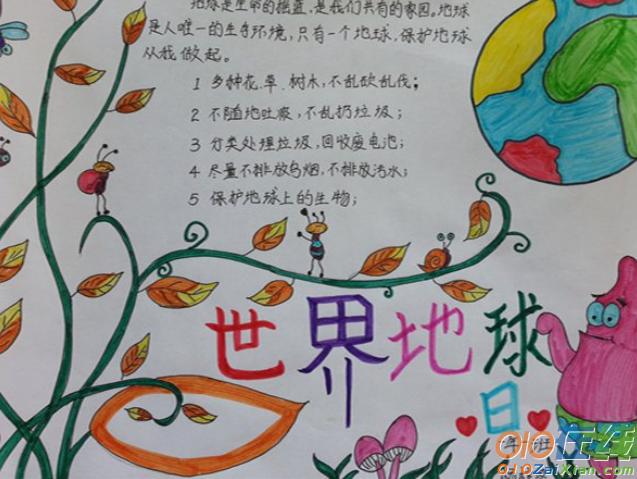 地球是生命的摇篮,是我们共有的家园。地球
是人唯一的生存环境,只有一个地球,保护地球
从我做起。
1 多种花、草、树木,不乱砍乱伐;
2 不随地吐痰,不乱扔垃圾;
3 分类处理垃圾,回收废电池;
4 尽量不排放乌烟,不排放污水;
5 保护地球上的生物;
世界地球
日
班
010在线
010ZaiXian.com